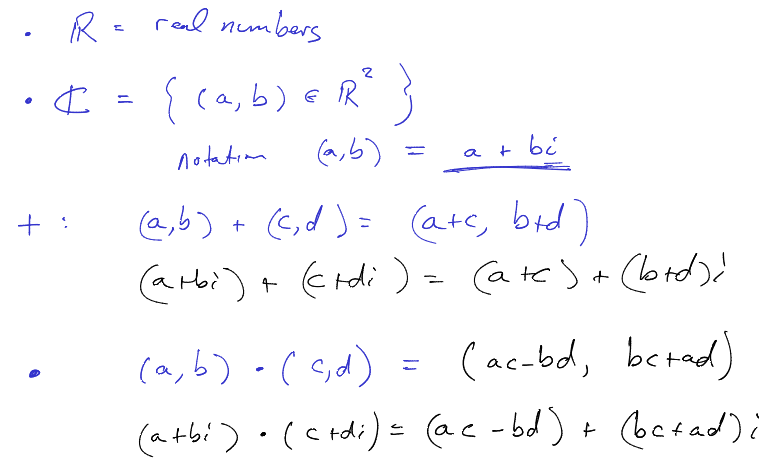 • ℝ = real numbers
• ℂ = { (a,b) ∈ ℝ² }
notation (a,b) = a + bi
+ : (a,b) + (c,d) = (a+c, b+d)
(a+bi) + (c+di) = (a+c) + (b+d)i
• (a,b) · (c,d) = (ac-bd, bc+ad)
(a+bi) · (c+di) = (ac-bd) + (bc+ad)i